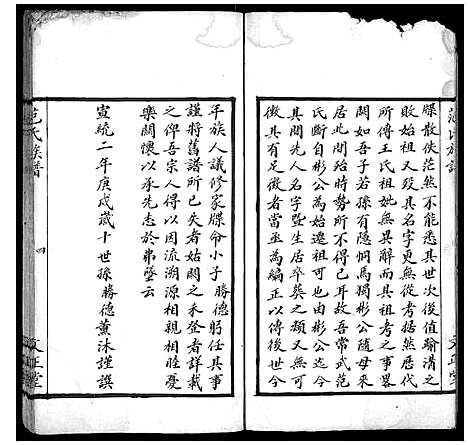 范氏族譜
牒散佚茫然不能悉其世次後值瑜清之
敗始祖又歿其名字更無攷據然歷代
所傳王氏祖妣無異辭而具祖考之事畧
闕如吾子若孫有隱恫焉獨彬公隨母來
居此間殆時勢所不得已耳故吾常武范
氏斷自彬公為始遷祖可也由彬公以下
具間先人名字暨生居卒葬之類又無可
徵具有足徵者當亟為編正以傳後世今
年族人議修家牒命小子勝德躬任具事
謹將舊譜所已失者姑闕之未登者詳載
之俾吾宗人得以因流溯源相親相睦憂
樂關懷以承先志於弗墜云
宣統二年庚戌歲十世孫勝德薰沐謹譔
范氏族譜
四
文正堂
文正堂